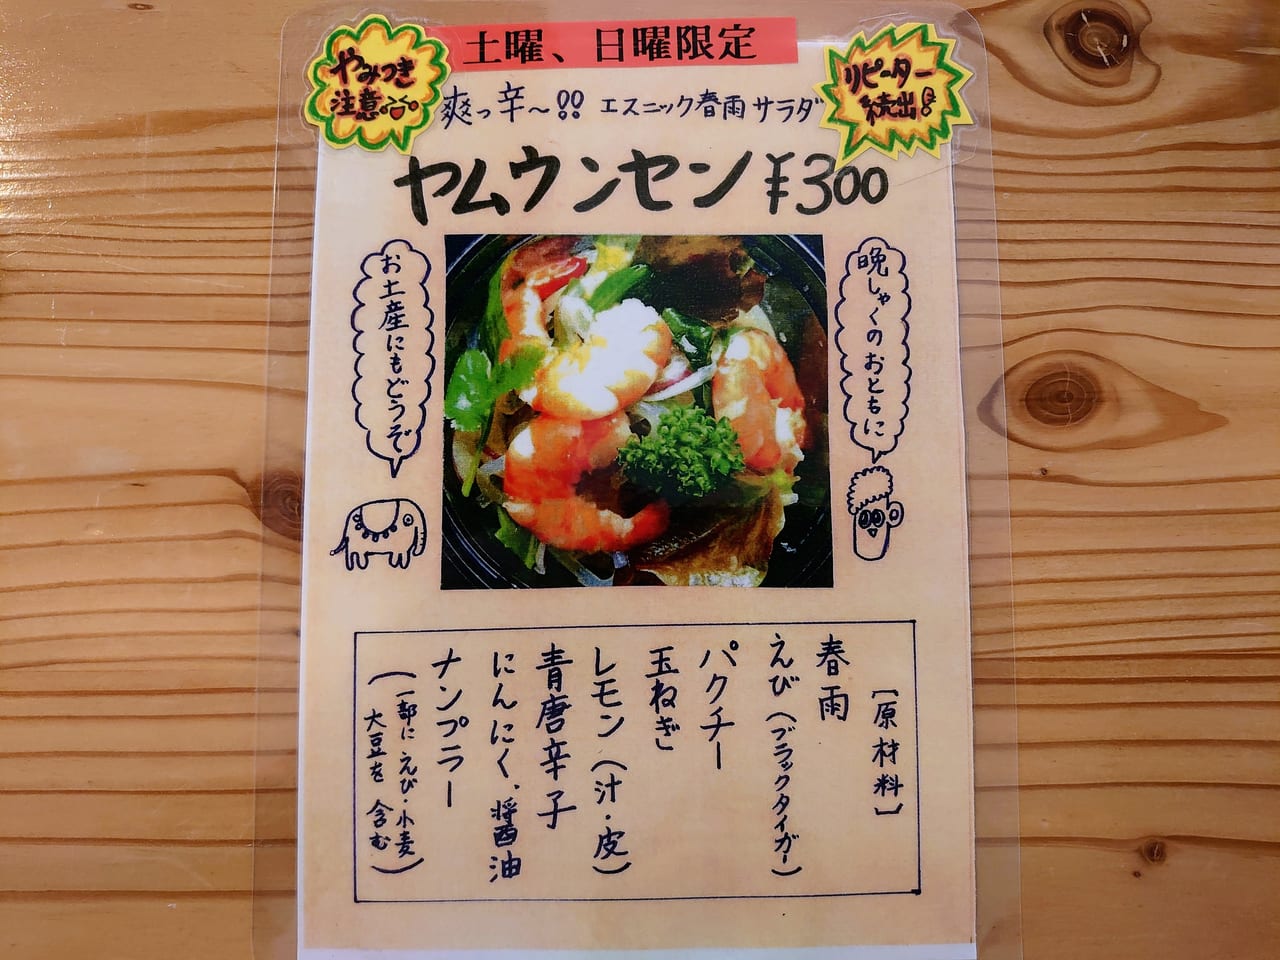 土曜、日曜限定
やみつき
注意
リピーター
続出!
爽っ辛〜!! エスニック春雨サラダ
ヤムウンセン ¥300
お土産にもどうぞ
晩しゃくのおともに
[原材料]
春雨
えび(ブラックタイガー)
パクチー
玉ねぎ
レモン(汁・皮)
青唐辛子
にんにく、醤油
ナンプラー
(一部にえび・小麦
大豆を含む)